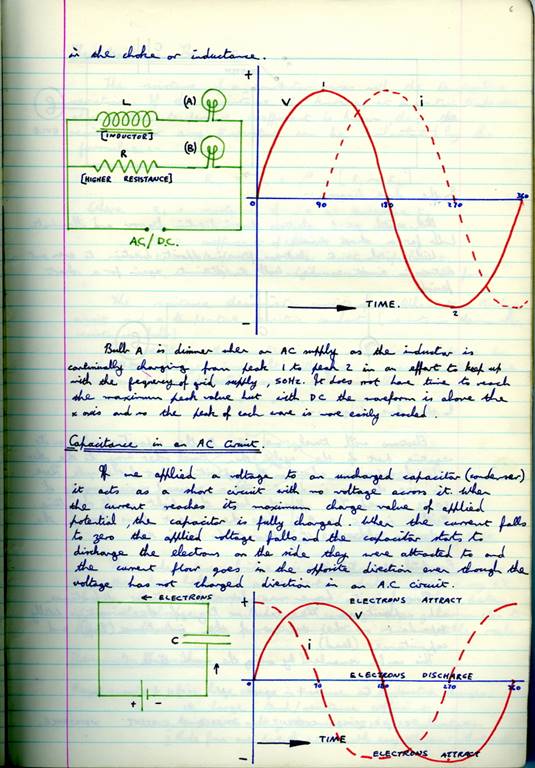 6
in the choke or inductance.
+
L
(A)
[INDUCTOR]
R
(B)
[HIGHER RESISTANCE]
AC/D.C.
V
1
i
0
90
180
270
360
2
TIME.
-
Bulb A is dimmer when an AC supply as the inductor is
continually charging from peak 1 to peak 2 in an effort to keep up
with the frequency of grid supply, 50Hz. It does not have time to reach
the maximum peak value but with DC the waveform is above the
x axis and so the peak of each wave is more easily reached.
Capacitance in an AC Circuit.
If we applied a voltage to an uncharged capacitor (condenser)
it acts as a short circuit with no voltage across it. When
the current reaches its maximum charge value of applied
potential, the capacitor is fully charged. When the current falls
to zero the applied voltage falls and the capacitor starts to
discharge the electrons on the side they were attracted to and
the current flow goes in the opposite direction even though the
voltage has not changed direction in an A.C circuit.
← ELECTRONS
C
↑
+ -
+
ELECTRONS ATTRACT
V
i
ELECTRONS DISCHARGE
0
90
180
270
360
TIME
ELECTRONS ATTRACT
-